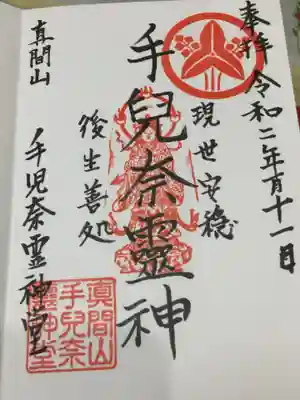 奉拝 令和二年一月十一日
現世安穏
手兒奈靈神
後生善処
真間山
手児奈霊神堂
真間山
手兒奈
霊神堂